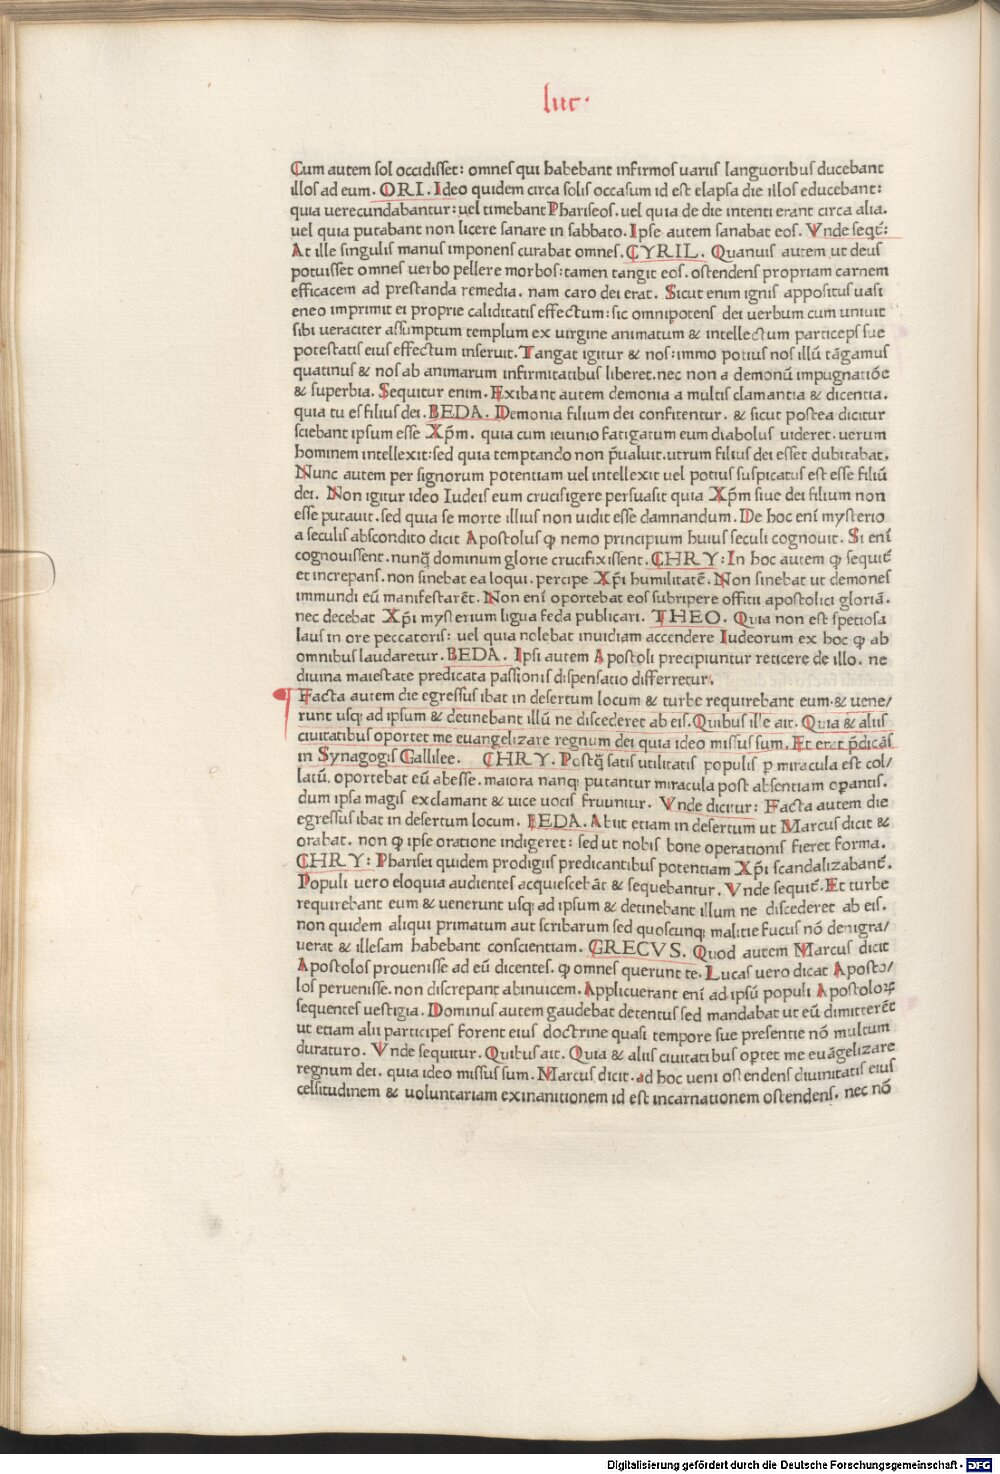 luc·
Cum autem sol occidisset: omnes qui habebant infirmos uariis languoribus ducebant
illos ad eum. ORI. Ideo quidem circa solis occasum id est elapsa die illos educebant:
quia uerecundabantur: uel timebant Phariseos. uel quia de die intenti erant circa alia.
uel quia putabant non licere sanare in sabbato. Ipse autem sanabat eos. Vnde seqt̄:
At ille singulis manus imponens curabat omnes. CYRIL. Quanuis autem ut deus
potuisset omnes uerbo pellere morbos: tamen tangit eos. ostendens propriam carnem
efficacem ad prestanda remedia. nam caro dei erat. Sicut enim ignis appositus uasi
eneo imprimit ei proprie caliditatis effectum: sic omnipotens dei uerbum cum uniuit
sibi ueraciter assumptum templum ex uirgine animatum & intellectum particeps sue
potestatis eius effectum inseruit. Tangat igitur & nos: immo potius nos illū tāgamus
quatinus & nos ab animarum infirmitatibus liberet. nec non a demonū impugnatiōe
& superbia. Sequitur enim. Exibant autem demonia a multis clamantia & dicentia.
quia tu es filius dei. BEDA. Demonia filium dei confitentur. & sicut postea dicitur
sciebant ipsum esse Xp̄m. quia cum ieiunio fatigatum eum diabolus uideret. uerum
hominem intellexit: sed quia temptando non p̄ualuit. utrum filius dei esset dubitabat.
Nunc autem per signorum potentiam uel intellexit uel potius suspicatus est esse filiū
dei. Non igitur ideo Iudeis eum crucifigere persuasit quia Xp̄m siue dei filium non
esse putauit. sed quia se morte illius non uidit esse damnandum. De hoc eni̅ mysterio
a seculis abscondito dicit Apostolus ꝙ nemo principium huius seculi cognouit. Si eni̅
cognouissent. nunq̄ dominum glorie crucifixissent. CHRY: In hoc autem ꝙ sequit̄
et increpans. non sinebat ea loqui. percipe Xp̄i humilitatē. Non sinebat ut demones
immundi eū manifestarēt. Non eni̅ oportebat eos subripere offitii apostolici gloriā.
nec decebat Xp̄i mysterium ligua feda publicari. THEO. Quia non est spetiosa
laus in ore peccatoris: uel quia nolebat inuidiam accendere Iudeorum ex hoc ꝙ ab
omnibus laudaretur. BEDA. Ipsi autem Apostoli precipiuntur reticere de illo. ne
diuina maiestate predicata passionis dispensatio differretur.
Facta autem die egressus ibat in desertum locum & turbe requirebant eum. & uene/
runt usq; ad ipsum & detinebant illū ne discederet ab eis. Quibus ille ait. Quia & aliis
ciuitatibus oportet me euangelizare regnum dei quia ideo missus sum. Et erat p̄dicās
in Synagogis Gallilee. CHRY. Postq̄ satis utilitatis populis ꝑ miracula est col/
latū. oportebat eū abesse. maiora nanq; putantur miracula post absentiam oꝑantis.
dum ipsa magis exclamant & uice uocis fruuntur. Vnde dicitur: Facta autem die
egressus ibat in desertum locum. BEDA. Abiit etiam in desertum ut Marcus dicit &
orabat. non ꝙ ipse oratione indigeret: sed ut nobis bone operationis fieret forma.
CHRY: Pharisei quidem prodigiis predicantibus potentiam Xp̄i scandalizabant̄.
Populi uero eloquia audientes acquiescebāt & sequebantur. Vnde sequit̄. Et turbe
requirebant eum & uenerunt usq; ad ipsum & detinebant illum ne discederet ab eis.
non quidem aliqui primatum aut scribarum sed quoscunq; malitie fucus nō denigra/
uerat & illesam habebant conscientiam. GRECVS. Quod autem Marcus dicit
Apostolos prouenisse ad eū dicentes. ꝙ omnes querunt te. Lucas uero dicat Aposto/
los peruenisse. non discrepant abinuicem. Applicuerant eni̅ ad ipsū populi Apostoloꝝ
sequentes uestigia. Dominus autem gaudebat detentus sed mandabat ut eū dimitterēt
ut etiam alii participes forent eius doctrine quasi tempore sue presentie nō multum
duraturo. Vnde sequitur. Quibus ait. Quia & aliis ciuitatibus oꝑtet me euāgelizare
regnum dei. quia ideo missus sum. Marcus dicit. ad hoc ueni ostendens diuinitatis eius
celsitudinem & uoluntariam exinanitionem id est incarnationem ostendens. nec nō
Digitalisierung gefördert durch die Deutsche Forschungsgemeinschaft - DFG